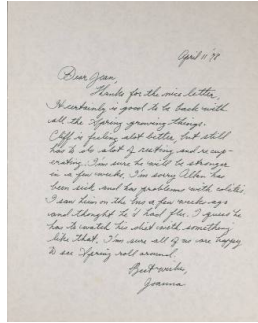 April 11 '98
Dear Jean,
Thanks for the nice letter,
It certainly is good to be back with
all the Spring growing things.
Cliff is feeling alot better, but still
has to do alot of resting and recup-
erating. I'm sure he will be stronger
in a few weeks, I'm sorry Allan has
been sick and has problems with colitis
I saw him on the bus a few weeks ago
and thought he'd had flu. I guess he
has to watch his diet with something
like that. I'm sure all of us are happy
to see Spring roll around.
Best wishes,
Joanna